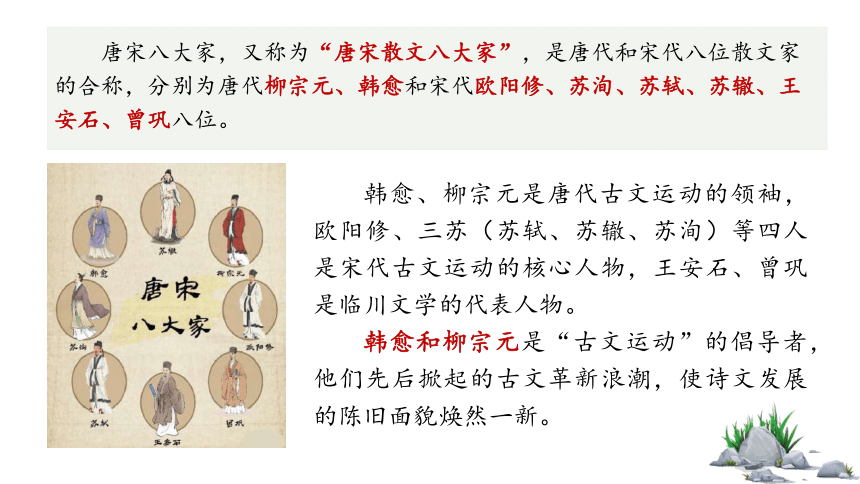 唐宋八大家，又称为“唐宋散文八大家”，是唐代和宋代八位散文家
的合称，分别为唐代柳宗元、韩愈和宋代欧阳修、苏洵、苏轼、苏辙、王
安石、曾巩八位。
韩愈、柳宗元是唐代古文运动的领袖，
欧阳修、三苏（苏轼、苏辙、苏洵）等四人
是宋代古文运动的核心人物，王安石、曾巩
是临川文学的代表人物。
韩愈和柳宗元是“古文运动”的倡导者，
他们先后掀起的古文革新浪潮，使诗文发展
的陈旧面貌焕然一新。
苏辙
韩愈
柳宗元
唐宋
八大家
苏洵
欧阳修
苏轼
曾巩
王安石